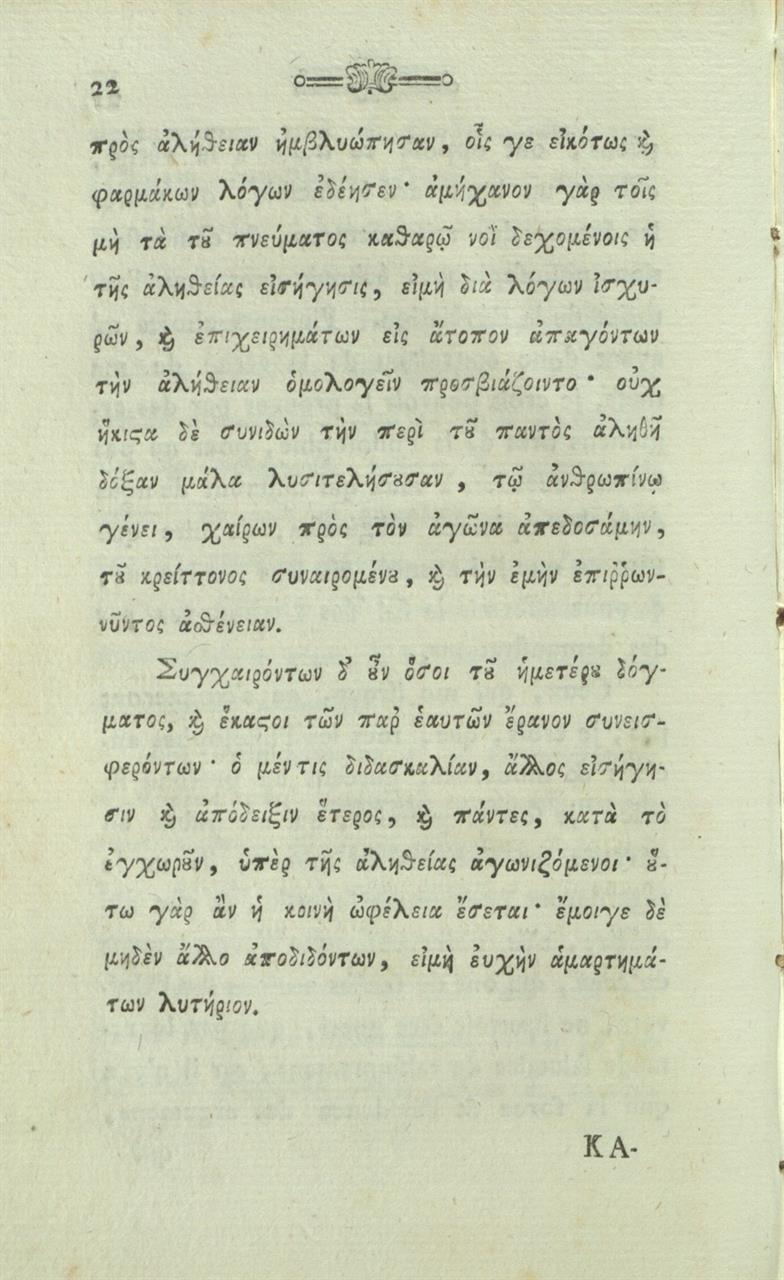 22
πρὸς ἀλήθειαν ἠμβλυώπησαν, οἷς γε εἰκότως ϗ
φαρμάκων λόγων ἐδέησεν· ἀμήχανον γὰρ τοῖς
μὴ τὰ τȣ͂ πνεύματος καθαρῷ νοῒ δεχομένοις ἡ
τῆς ἀληθείας εἰσήγησις, εἰμὴ διὰ λόγων ἰσχυ-
ρῶν, ϗ ἐπιχειρημάτων εἰς ἄτοπον ἀπαγόντων
τὴν ἀλήθειαν ὁμολογεῖν προσβιάζοιντο· οὐχ
ἥκιϛα δὲ συνιδὼν τὴν περὶ τȣ͂ παντὸς ἀληθῆ
δόξαν μάλα λυσιτελήσȣσαν, τῷ ἀνθρωπίνῳ
γένει, χαίρων πρὸς τὸν ἀγῶνα ἀπεδοσάμην,
τȣ͂ κρείττονος συναιρομένȣ, ϗ τὴν ἐμὴν ἐπιῤῥων-
νῦντος ἀσθένειαν.
Συγχαιρόντων δ' ȣ͂ν ὅσοι τȣ͂ ἡμετέρȣ δόγ-
ματος, ϗ ἕκαϛοι τῶν παρ' ἑαυτῶν ἔρανον συνεισ-
φερόντων· ὁ μέν τις διδασκαλίαν, ἄλλος εἰσήγη-
σιν ϗ ἀπόδειξιν ἕτερος, ϗ πάντες, κατὰ τὸ
ἐγχωρȣ͂ν, ὑπὲρ τῆς ἀληθείας ἀγωνιζόμενοι· ȣ̔́-
τω γὰρ ἂν ἡ κοινὴ ὠφέλεια ἔσεται· ἔμοιγε δὲ
μηδὲν ἄλλο ἀποδιδόντων, εἰμὴ ἐυχὴν ἁμαρτημά-
των λυτήριον.
ΚΑ-